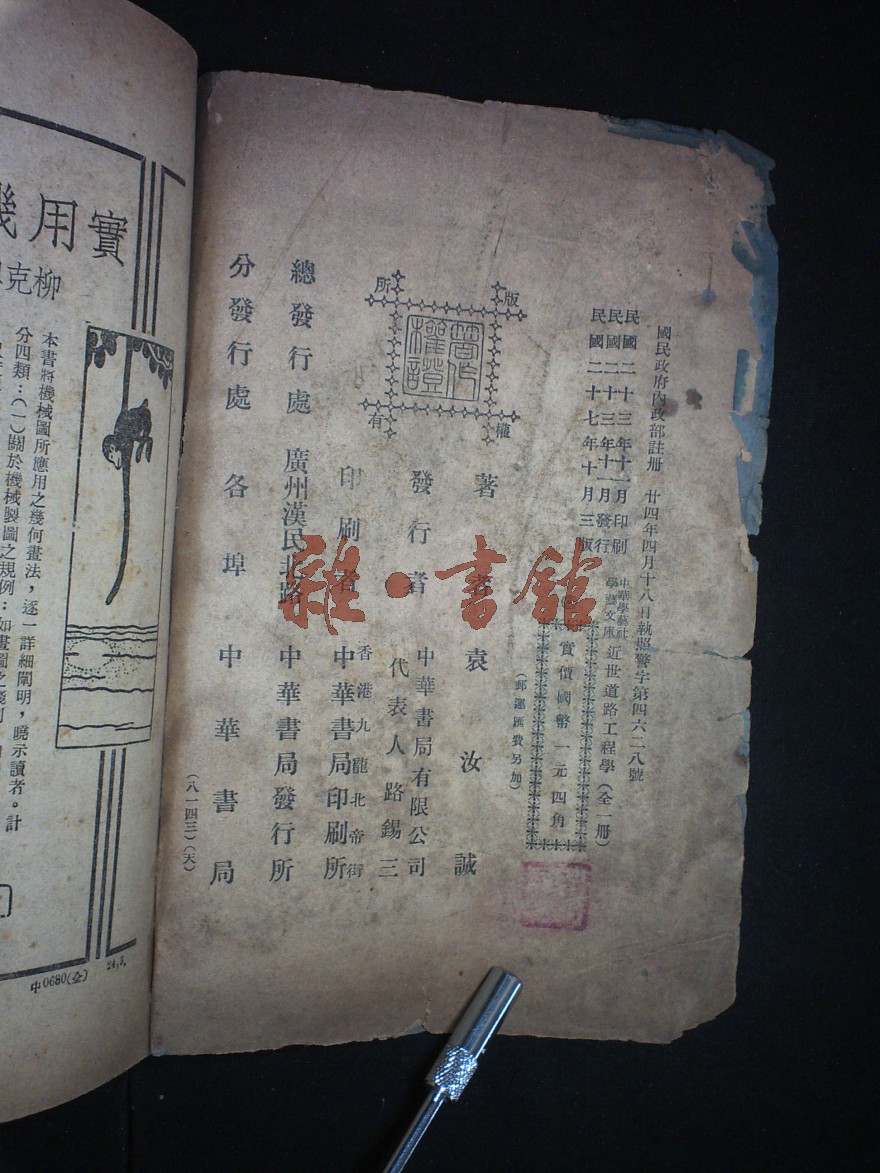 國民政府內政部註冊 廿四年四月十八日執照警字第四六二八號
民國二十三年十一月印刷
民國二十三年十一月發行
民國二十七年十月三版
中華學藝社
學藝文庫
近世道路工程學(全一冊)
實價國幣一元四角
(郵運匯費另加)
版權所有
著作權證
著者 袁汝誠
發行者 中華書局有限公司
代表人 路錫三
印刷者 香港九龍北帝街
中華書局印刷所
總發行處 廣州漢民北路 中華書局發行所
分發行處 各埠 中華書局
(八一四三)(天)
雜·書館
實用幾
柳克
本書將機械圖所應用之幾何畫法,逐一詳細闡明,曉示讀者。計
分四類:(一)關於機械製圖之規例:如畫圖之
中0680(全) 24,3,